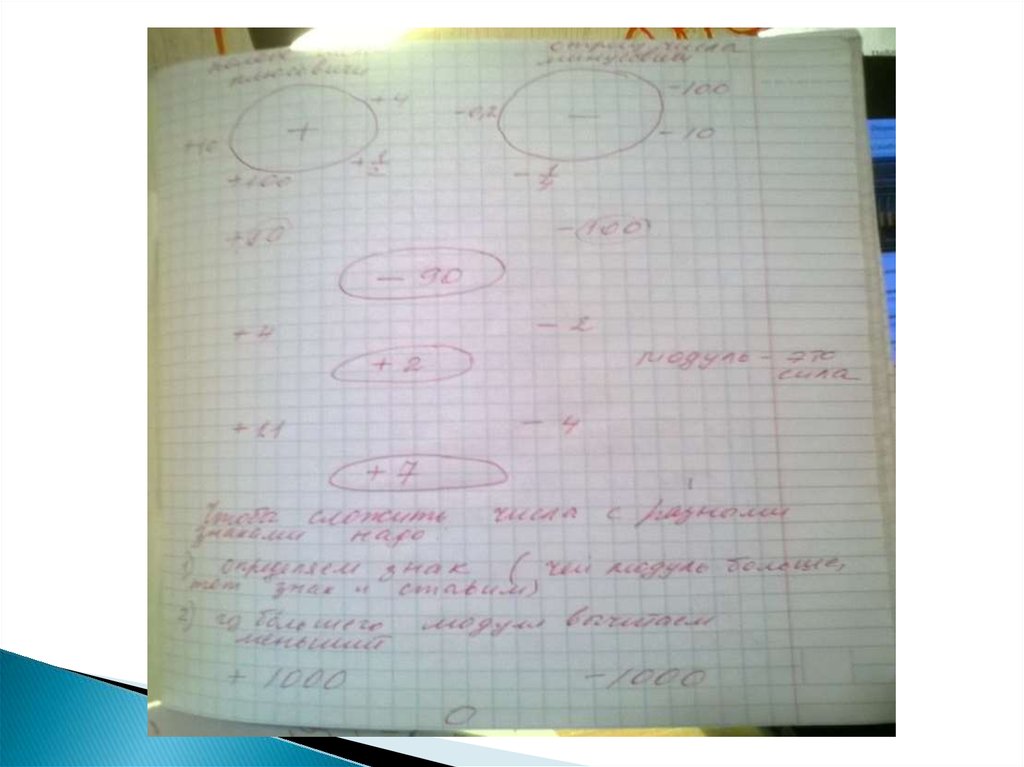 полож числа отриц. числа
плюсовичи минусовичи
+4 -0,2 -100
+ −
+10 - 10
+100 +1/2 - 1/4
+10 -100
- 90
+4 - 2
+ 2 модуль - это
сила
+11 - 4
+ 7
Чтоба сложить числа с разными
знаками надо
1) определяем знак ( чей модуль больше,
тот знак и ставим)
2) из большего модуля вычитаем
меньший
+ 1000 -1000
0